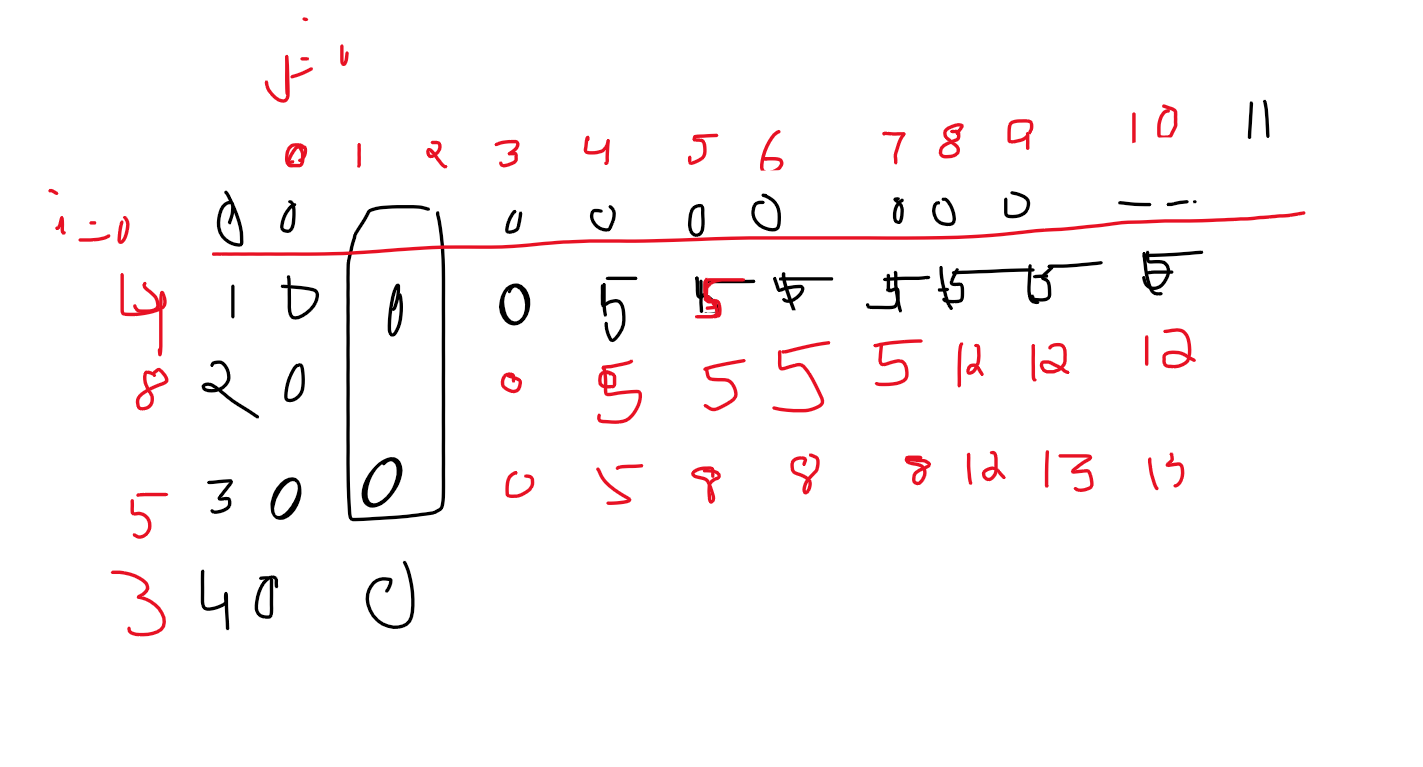 j=
0 1 2 3 4 5 6 7 8 9 10 11
i=0 0 0 0 0 0 0 0 0 0 -- -.
4 1 0 0 0 5 5 5 5 5 5 5
8 2 0 0 5 5 5 5 12 12 12
5 3 0 0 0 5 8 8 8 12 13 13
3 4 0 0